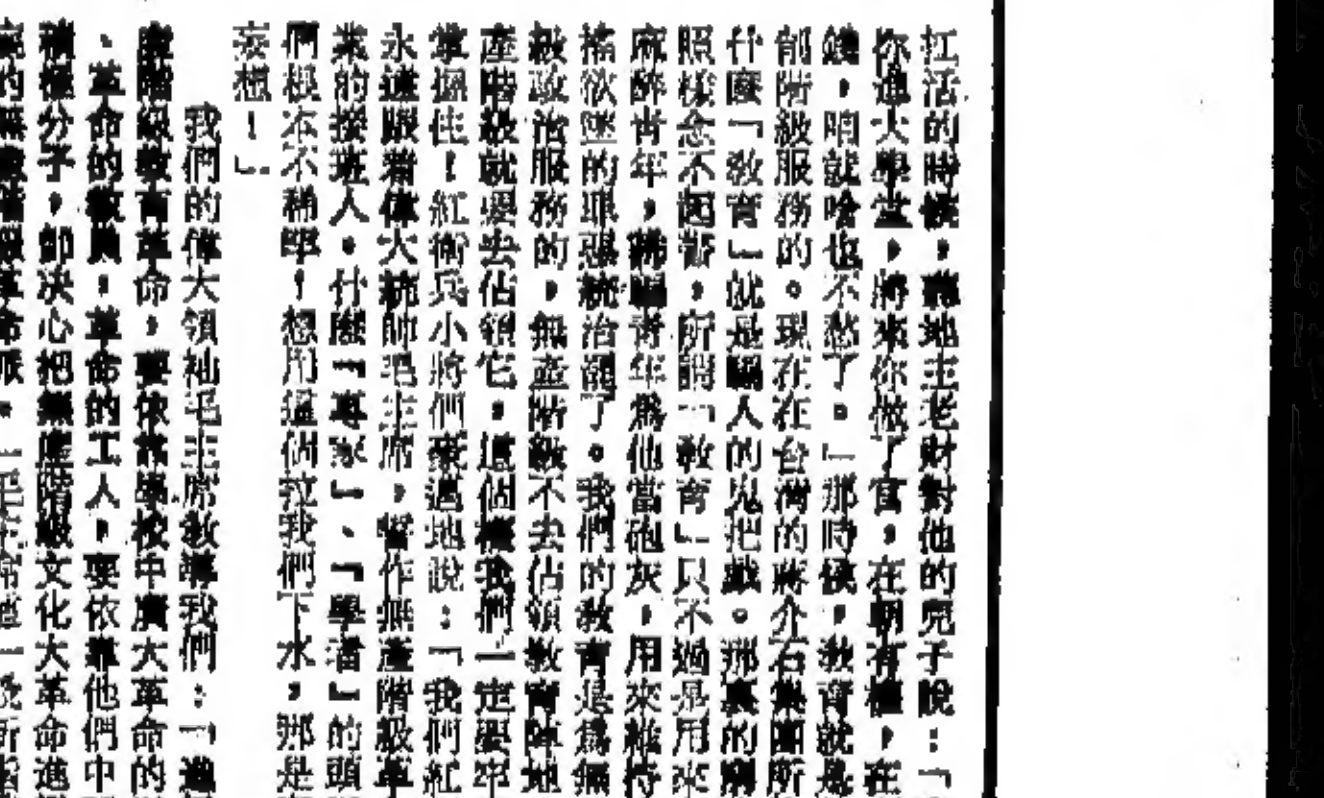 扛活的時候，聽地主老財對他的兒子說：「
你進大學堂，將來你做了官，在朝有權，在
錢，咱就啥也不愁了。」那時候，教育就是
削階級服務的。現在在台灣的蔣介石集團所
什麼「教育」就是騙人的鬼把戲。那裏的剝
照樣念不起書，所謂「教育」只不過是用來
麻醉青年，誘騙青年爲他當砲灰，用來維持
搖欲墜的罪惡統治罷了。我們的教育是爲無
級政治服務的，無產階級不去佔領教育陣地
產階級就要去佔領它。這個權我們一定要牢
掌握住！紅衛兵小將們豪邁地說：「我們紅
永遠跟着偉大統帥毛主席，誓作無產階級革
業的接班人。什麼「專家」、「學者」的頭
們根本不稀罕！想用這個拉我們下水，那是
妄想！」
我們的偉大領袖毛主席教導我們：「進
產階級教育革命，要依靠學校中廣大革命的
、革命的教員，革命的工人，要依靠他們中
積極分子，即決心把無產階級文化大革命進
的無產階級革命派。」毛主席這一